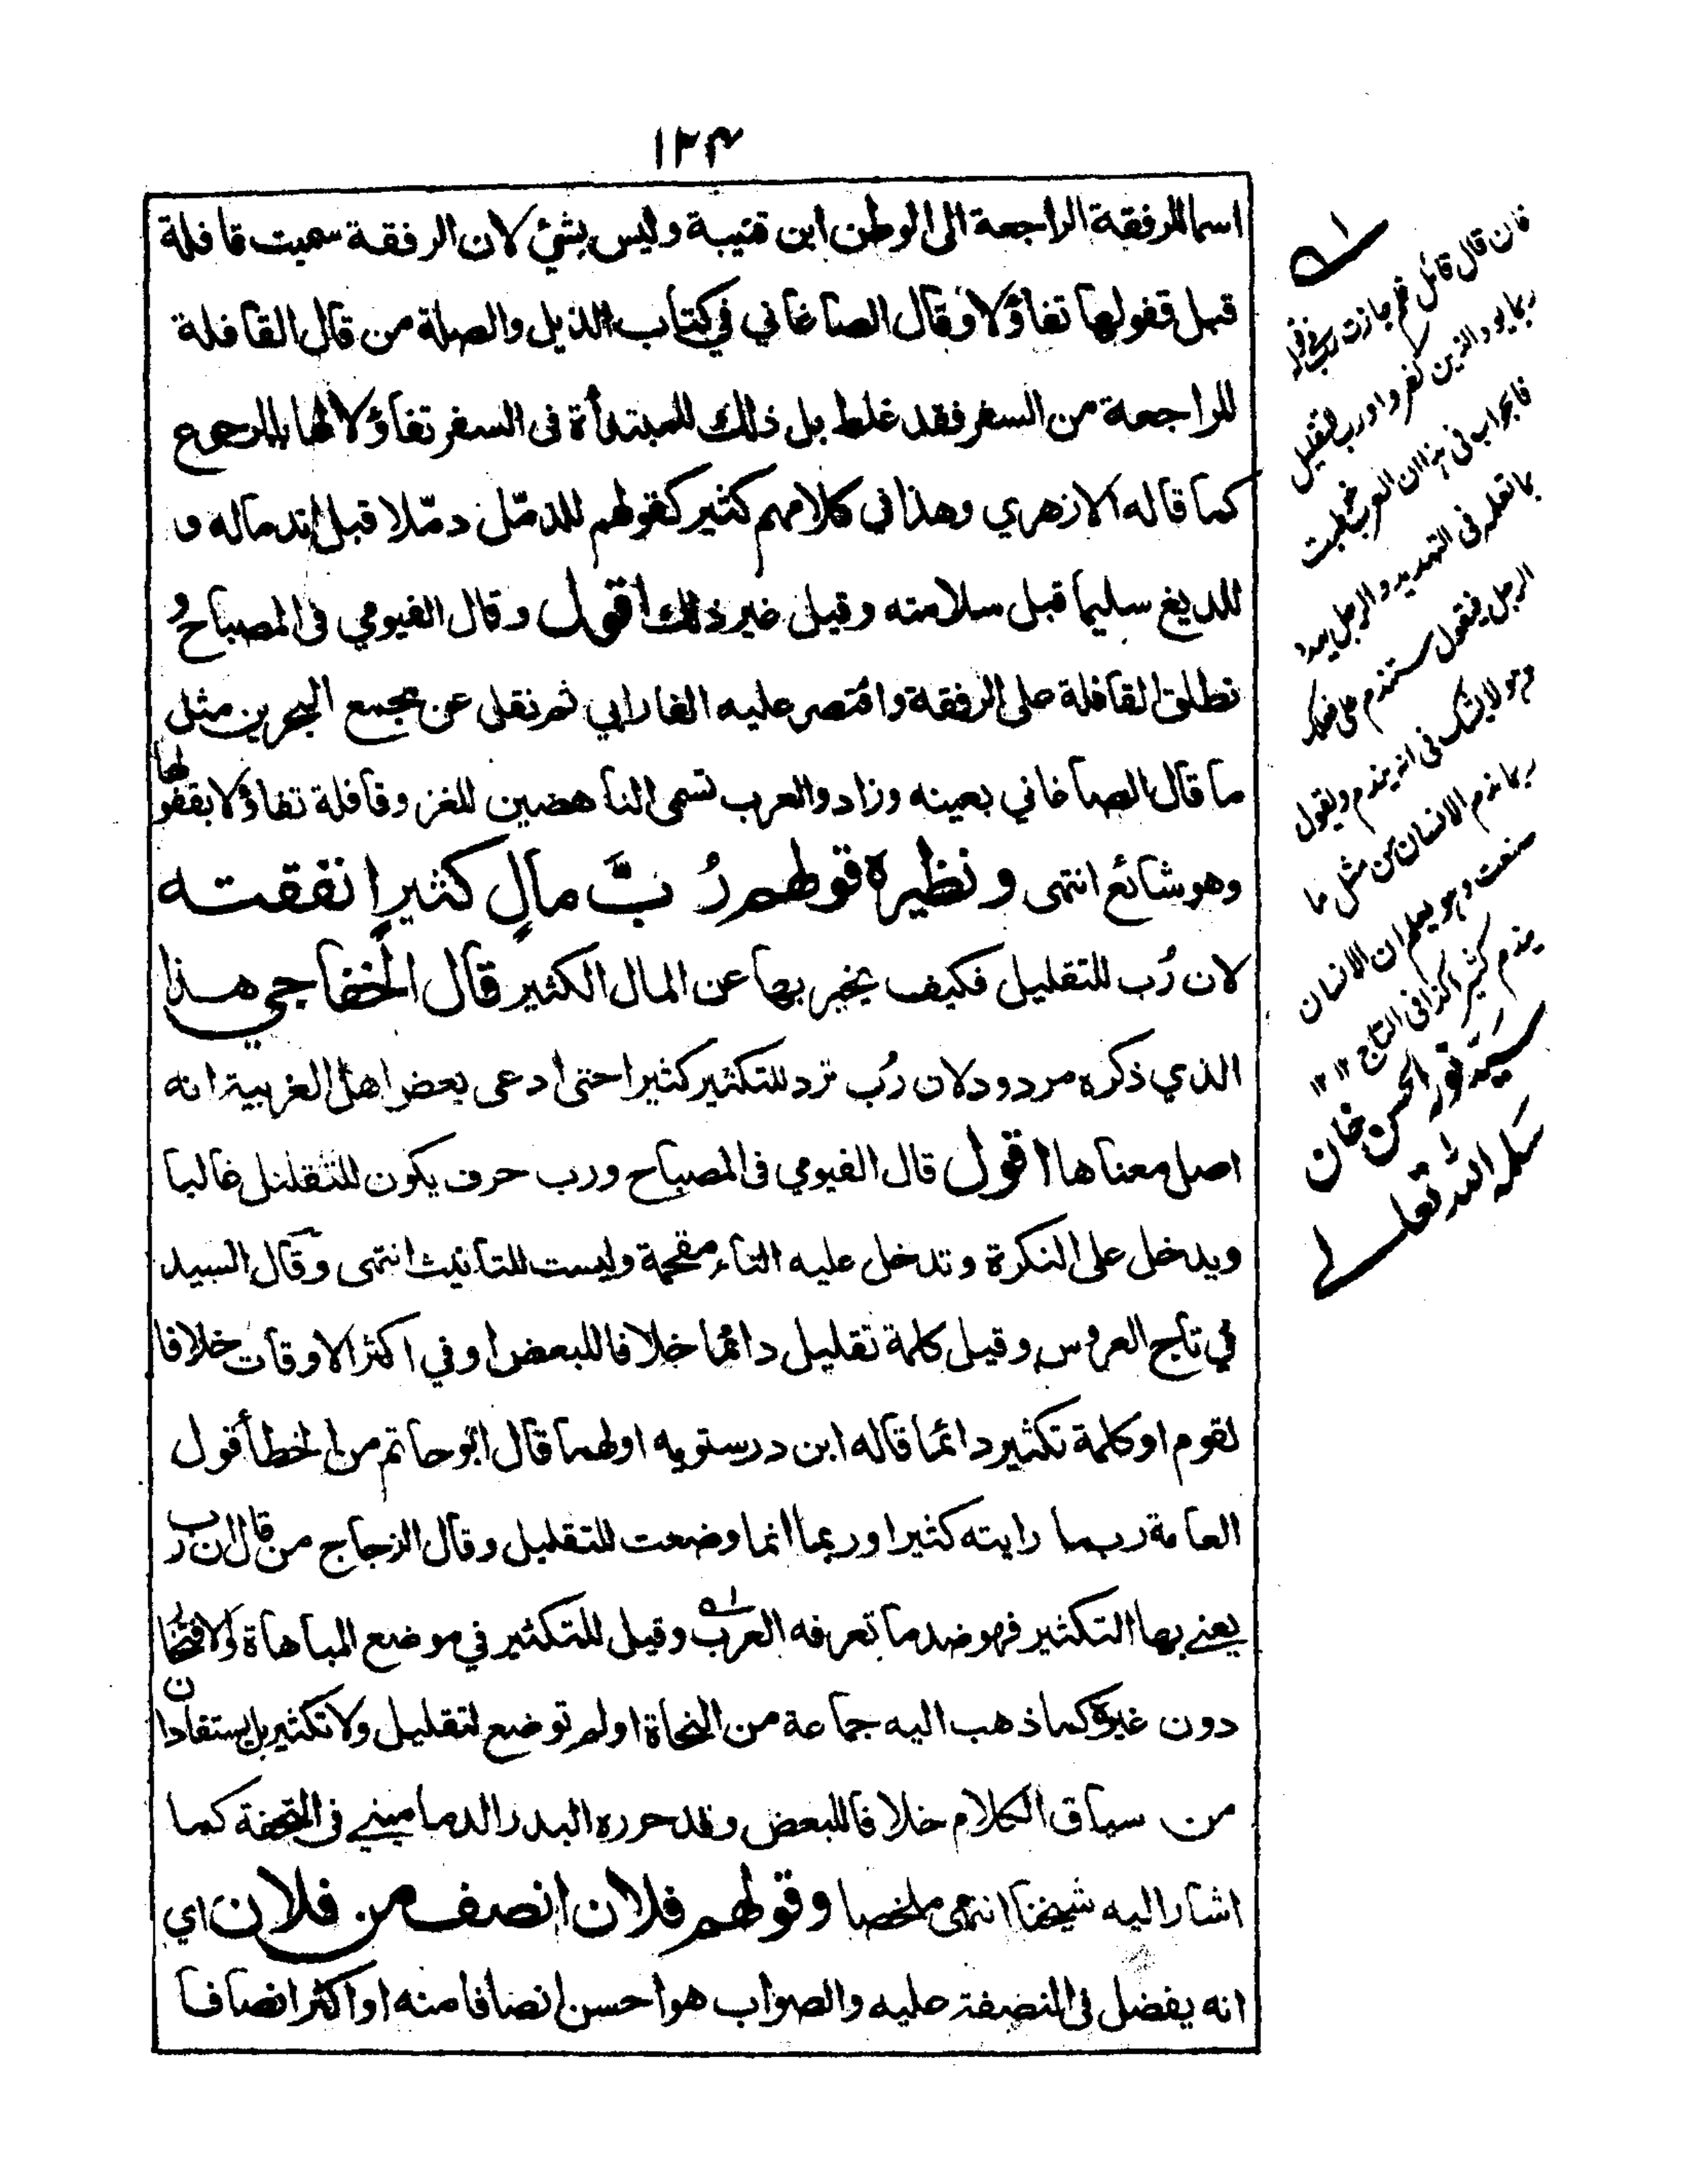 ١٢٤
اسما للرفقة الراجعة الى الوطن ابن قتيبة وليس بشئ لان الرفقة سميت قافلة
قبل قفولها تفاؤلا وقال الصاغاني في كتاب الذيل والصلة من قال القافلة
للراجعة من السفر فقد غلط بل ذلك للمبتدأة في السفر تفاؤلا لها بالرجوع
كما قاله الازهري وهذا في كلامهم كثير كقولهم للدمّل دمّلا قبل اندماله و
للديغ سليما قبل سلامته وقيل غير ذلك اقول وقال الفيومي فى المصباح و
تطلق القافلة على الرفقة واقتصر عليه الفارابي ثم نقل عن مجمع البحرين مثل
ما قال الصاغاني بعينه وزاد والعرب تسمى الناهضين للغزو قافلة تفاؤلا بقفولها
وهو شائع انتهى ونظيره قولهم رُبَّ مالٍ كثيرٍ انفقته
لان رُب للتقليل فكيف يخبر بها عن المال الكثير قال الخفاجي هذا
الذي ذكره مردود لان رُب ترد للتكثير كثيرا حتى ادعى بعض اهل العربية انه
اصل معناها اقول قال الفيومي فى المصباح ورب حرف يكون للتقليل غالبا
ويدخل على النكرة وتدخل عليه التاء مقحمة وليست للتانيث انتهى وقال السيد
في تاج العروس وقيل كلمة تقليل دائما خلافا للبعض او في اكثر الاوقات خلافا
لقوم او كلمة تكثير دائما قاله ابن درستويه اولهما قال ابو حاتم من الخطأ قول
العامة ربما رايته كثيرا وربما انما وضعت للتقليل وقال الزجاج من قال ان رب
يعني بها التكثير فهو ضد ما تعرفه العرب وقيل للتكثير في موضع المباهاة والافتخار
دون غيره كما ذهب اليه جماعة من النحاة او لم توضع لتقليل ولا تكثير بل يستفادان
من سياق الكلام خلافا للبعض وقد حرره البدر الدماميني في التحفة كما
اشار اليه شيخنا انتهى ملخصا وقولهم فلان انصف من فلان اي
انه يفضل في النصفة عليه والصواب هو احسن انصافا منه او اكثر انصافا
فان قال قائل فلم جازت رب في قوله
ربما يود الذين كفروا ورب للتقليل
فالجواب في هذا ان العرب خوطبت
بما تعلمه فى التهديد والرجل يهدد
الرجل فيقول ستندم على فعلك
وهو لا يشك في انه يندم ويقول
ربما ندم الانسان من مثل ما
صنعت وهو يعلم ان الانسان
يندم كثيرا كذا في التاج ١٢
سيد نور الحسن خان
سلمه الله تعالى